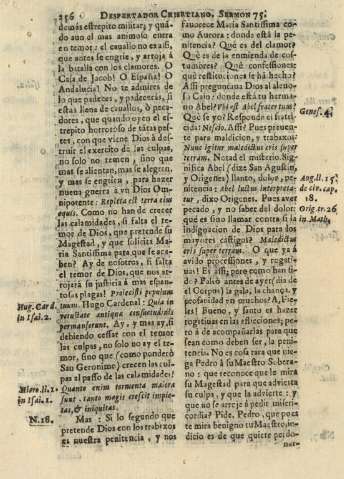 256 DESPERTADOR CHRISTIANO, SERMON 75.
demàs estrepito militar; y quan-
do aun el mas animoso entra
en temor: el cavallo no es assi,
que antes se engrie, y arroja à
la batalla con los clamores. O
Casa de Jacob! O España! O
Andalucia! No te admires de
lo que padeces, y padecerás, si
estás llena de cavallos, ò peca-
dores, que quando oyen el es-
trepito horroroso de tãtas pes-
tes, con que viene Dios à des-
truir el exercito de las culpas,
no solo no temen, sino que
mas se alientan, mas se alegran,
y mas se engrien, para hazer
nueva guerra à vn Dios Om-
nipotente: Repleta est terra eius
equis. Como no han de crecer
las calamidades, si falta el te-
mor de Dios, que pretende su
Magestad, y que solicita Maria
Santissima para que se aca-
ben? Ay de nosotros, si falta
el temor de Dios, que nos ar-
rojará su justicia à mas espan-
tosas plagas!
tuum. Hugo Cardenal: Quia in
vetustate antiqua consuetudinis
permanserunt. Ay, y mas ay, si
debiendo cessar con el temor
las culpas, no solo no ay el te-
mor, sino que (como ponderò
San Geronimo) crecen las cul-
pas al passo de las calamidades!
Quanto enim tormenta maiora
sunt, tanto magis crescit impie-
tas, & iniquitas.
Mas: Si lo segundo que
pretende Dios con los trabaxos
es nuestra penitencia, y nos
Hug. Card.
in Isai. 2.
Hiero. li. 1.
in Isai. 1.
N. 18.
favorece Maria Santissima como
Aurora: donde está la pe-
nitencia? Què es del clamor?
Què es de la enmienda de cos-
tumbres? Què confessiones?
què restituciones se hã hecho?
Assi preguntava Dios al aleno-
so Cain: donde está tu herma-
no Abel? Vbi est Abel frater tuus?
Què se yo? Respondiò el fratri-
cida: Nescio. Assi? Pues prevente
para maldicion, y trabaxos:
Nunc igitur maledictus eris super
terram. Notad el misterio. Sig-
nifica Abel (dize San Agustin,
y Origenes) llanto, dolor, pe-
nitencia: Abel luctus interpreta-
tur, dixo Origenes. Pues aver
pecado, y no saber del dolor:
què es sino llamar contra si la
indignacion de Dios para los
mayores castigos? Maledictus
eris super terram. O que ya à
avido processiones, y rogati-
vas! Es assi; pero como han si-
do? Passò antes de ayer (dia de
el Corpus) la gala, la chança, y
prosanidad en muchos? A, Fie-
les! Bueno, y santo es hazer
rogativas en las aflicciones; pe-
ro à de acompañarlas para que
sean como deben ser, la peni-
tencia. No es cosa rara que nie-
ga Pedro à su Maestro Sobera-
no: que reconoce que le mira
su Magestad para que advierta
su culpa, y que la advierte: y
que no se arroje à pedir miseri-
cordia? Pide, Pedro, que pues
te mira benigno tu Maestro, in-
dicio es de que quiere perdo-
nar-
Genes. 4.
Aug. li. 15.
de civ. cap.
18.
Orig. tr. 26.
in Math.